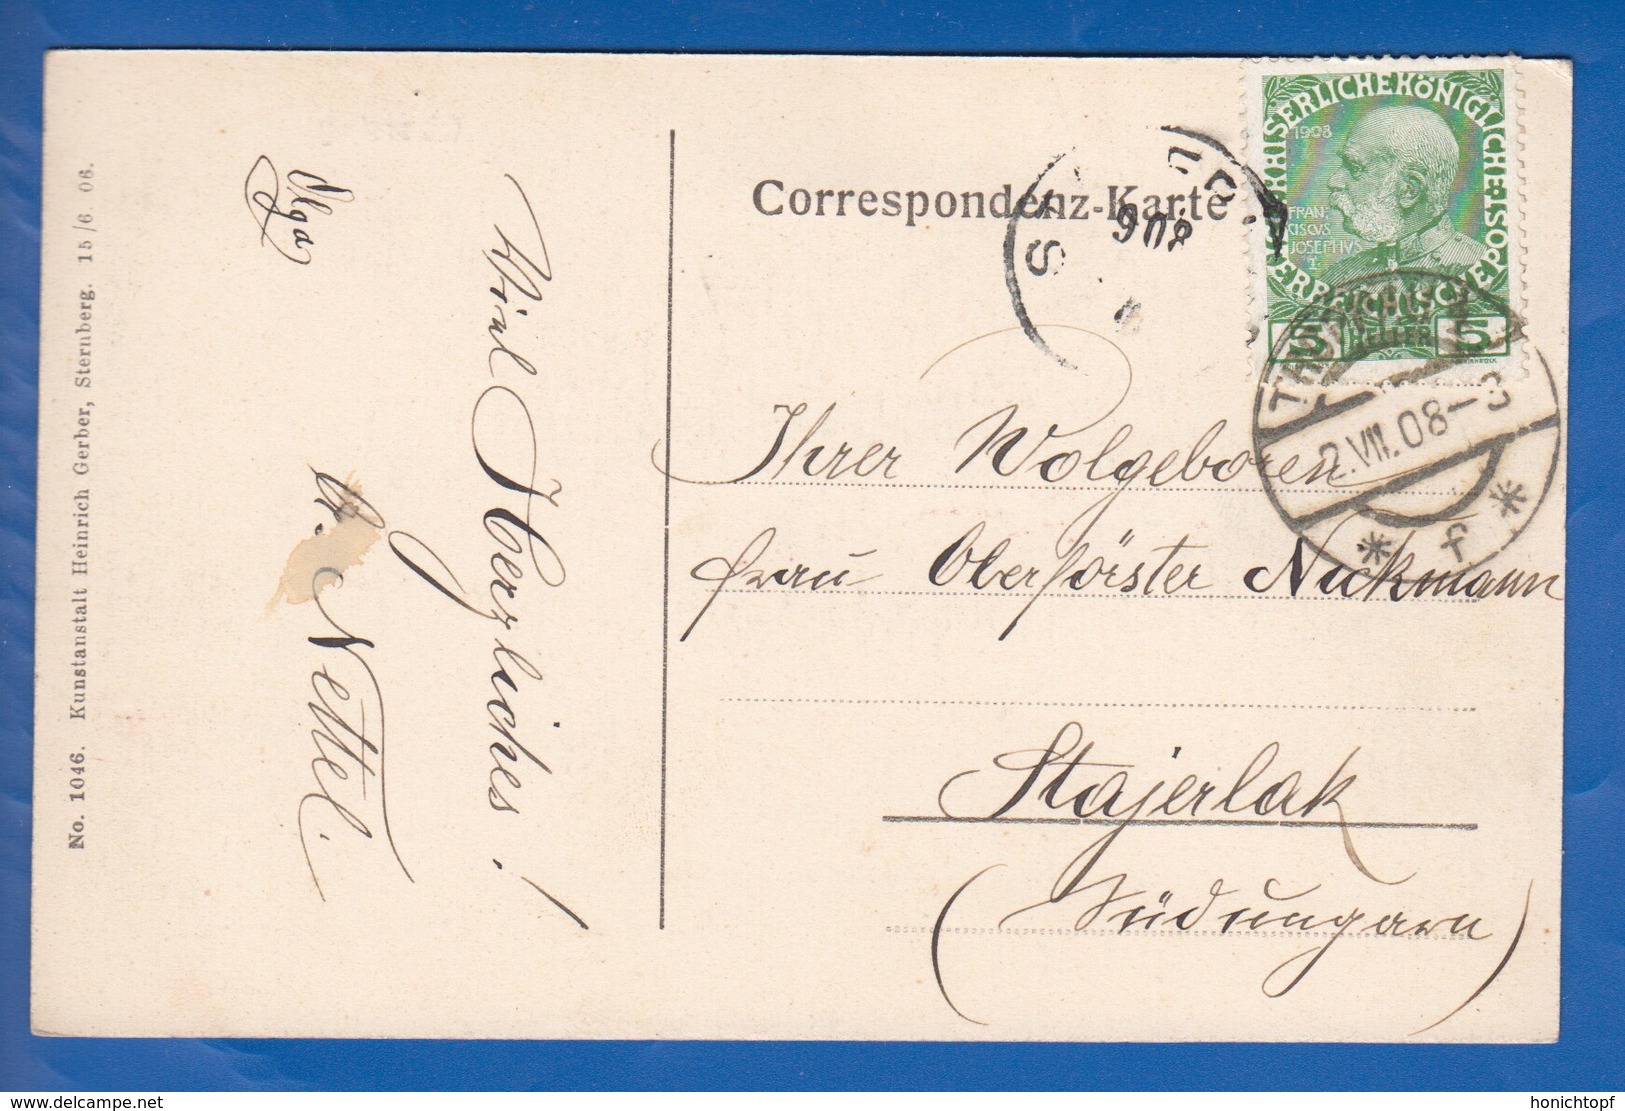 No. 1046. Kunstanstalt Heinrich Gerber, Sternberg. 15/6 06.
Olga
Nettel.
Viel Herzliches!
Correspondenz-Karte
KAISERLICHE KÖNIGLICHE
ÖSTERREICHISCHE POST
1908
FRAN
CISCVS
JOSEPHVS
I.
5 HELLER 5
908
2.VII.08
* f *
Ihrer Wolgeboren
Frau Oberförster Nuckmann
Stajerlak
(Südungarn)
www.delcampe.net
honichtopf